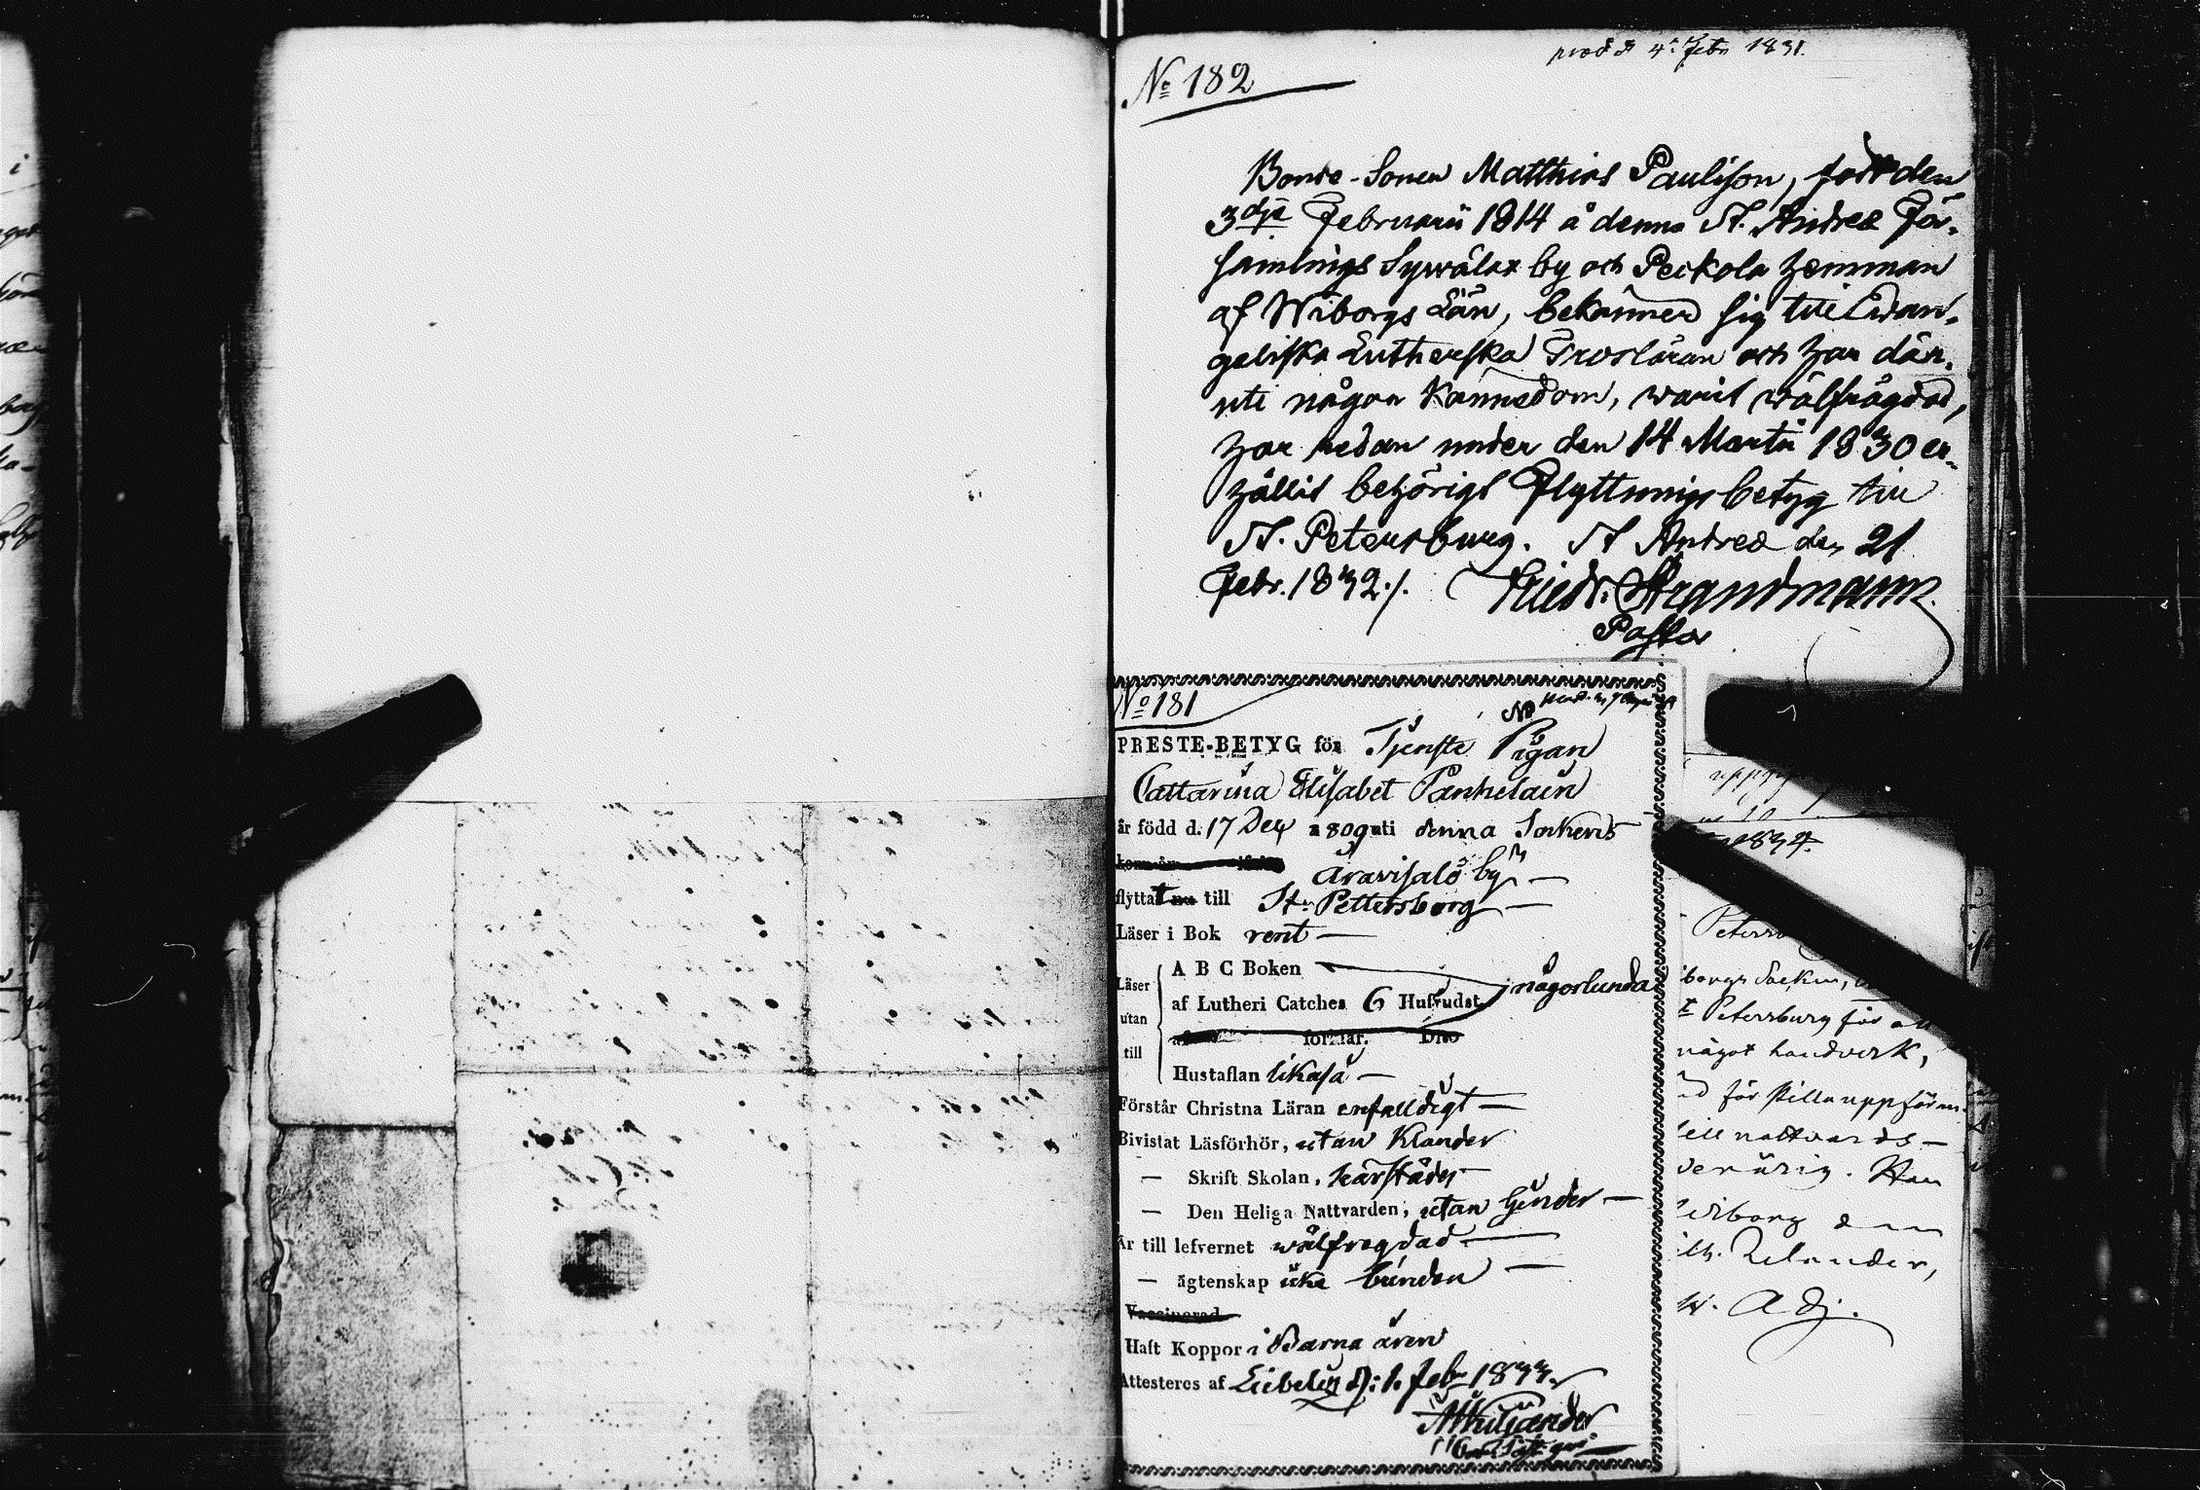 No 182
4 Febr 1831.
Bonde-Sonen Matthias Paulison, född den
3dje Februarii 1814 å denna St. Andreæ För-
samlings Sywälax by och Peckola hemman
af Wiborgs Län, bekänner sig till Ewan-
geliska Lutherska Trosläran och har där-
uti någon Kännedom, warit wälfrägdad,
har redan under den 14 Martii 1830 er-
hållit behörigt Flyttningsbetyg till
St. Petersburg. St Andreæ den 21
Febr. 1832./. Friedr. Strandmann.
Pastor
No 181
PRESTE-BETYG för Tjenste Pigan
Cattarina Elisabet Panhelain
är född d. 17 Dec 1809 uti denna Sockens
Äravisalo by —
flyttat till St. Pettersborg —
Läser i Bok rent —
Läser utan till
A B C Boken
af Lutheri Catches 6 Hufvudst. någorlunda
förklar. Dito
Hustaflan likaså —
Förstår Christna Läran enfalldigt —
Bivistat Läsförhör, utan Klander
— Skrift Skolan, härstädes
— Den Heliga Nattvarden, utan hinder —
Är till lefvernet wälfregdad —
— ägtenskap icke bunden —
Vaccinerad
Haft Koppor i Barna åren
Attesteras af Libelitz d: 1. Febr 1833.
1834.
borgs Socken,
Petersburg för att
något handverk,
för stilla uppföran-
nattvards-
Han
Wiborg den
Relander,
Adj.